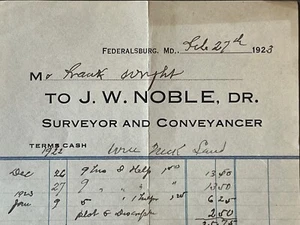 FEDERALSBURG, MD., Feb 27th 1923
Mr Frank Wright
TO J. W. NOBLE, DR.
SURVEYOR AND CONVEYANCER
TERMS CASH
1922 Neck Land
Dec 26 9 hrs & Help 1.50 13.50
27 9 " " " " 13.50
1923
Jan 9 5 " 1 helper 1.25 6.25
plot & Descript 2.50